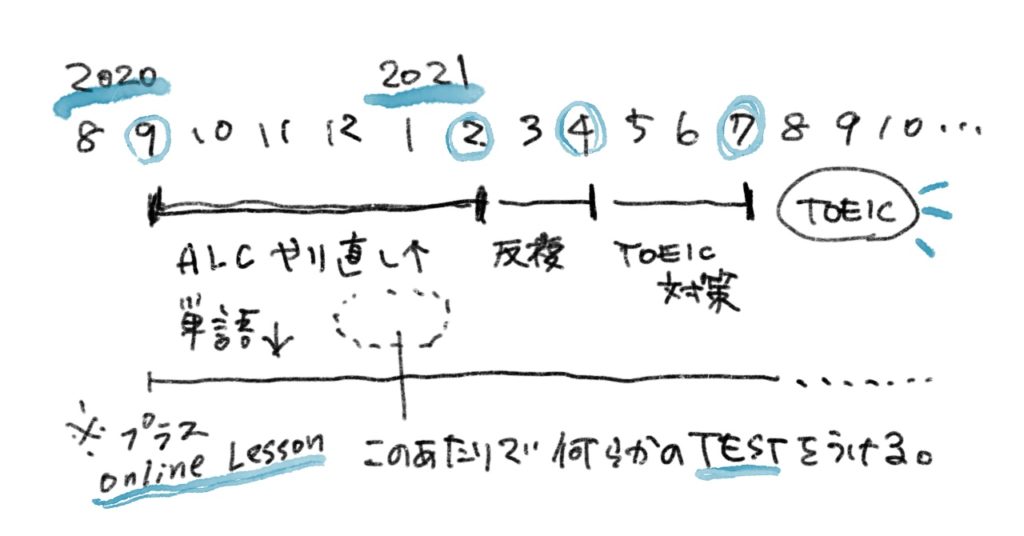 2020 2021
8 9 10 11 12 1 2 3 4 5 6 7 8 9 10 ...
ALC やり直し↑ 反複 TOEIC TOEIC
対策
単語↓
※プラス
online Lesson このあたりで何らかのTESTをうける。